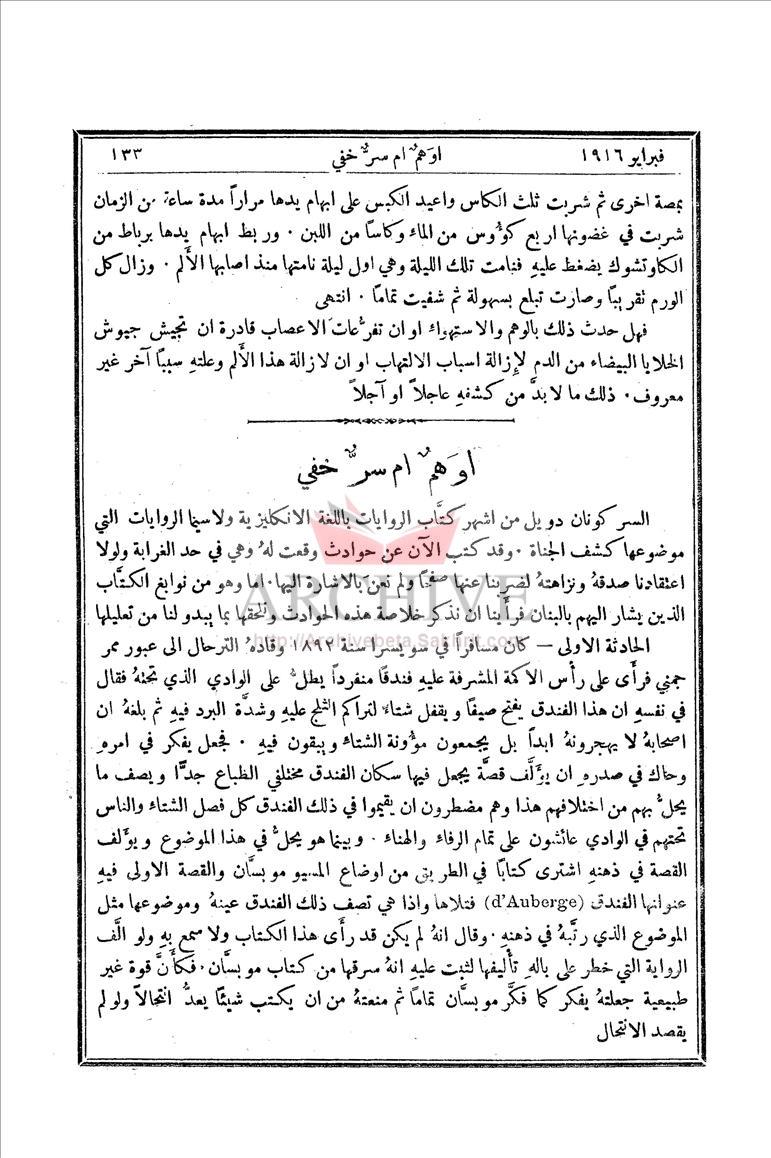 فبراير ١٩١٦ اوَهمٌ ام سرٌّ خفي ١٣٣
بمصة اخرى ثم شربت ثلث الكاس واعيد الكبس على ابهام يدها مراراً مدة ساعة من الزمان
شربت في غضونها اربع كؤوس من الماء وكاساً من اللبن . وربط ابهام يدها برباط من
الكاوتشوك يضغط عليهِ فنامت تلك الليلة وهي اول ليلة نامتها منذ اصابها الأَلم . وزال كل
الورم تقريباً وصارت تبلع بسهولة ثم شفيت تماماً . انتهى
فهل حدث ذلك بالوهم والاستهواء او ان تفرُّعات الاعصاب قادرة ان تجيش جيوش
الخلايا البيضاء من الدم لإِزالة اسباب الالتهاب او ان لازالة هذا الأَلم وعلتهِ سبباً آخر غير
معروف . ذلك ما لا بدَّ من كشفهِ عاجلاً او آجلاً
اوَهمٌ ام سرٌّ خفي
السر كونان دويل من اشهر كتَّاب الروايات باللغة الانكليزية ولاسيما الروايات التي
موضوعها كشف الجناة . وقد كتب الآن عن حوادث وقعت لهُ وهي في حد الغرابة ولولا
اعتقادنا صدقهُ ونزاهتهُ لضربنا عنها صفحاً ولم نعنَ بالاشارة اليها . اما وهو من نوابغ الكتَّاب
الذين يشار اليهم بالبنان فرأَينا ان نذكر خلاصة هذه الحوادث ونلحقها بما يبدو لنا من تعليلها
الحادثة الاولى — كان مسافراً في سويسرا سنة ١٨٩٢ وقادهُ الترحال الى عبور ممر
جمني فرأَى على رأس الاكمة المشرفة عليهِ فندقاً منفرداً يطلُّ على الوادي الذي تحتهُ فقال
في نفسهِ ان هذا الفندق يفتح صيفاً ويقفل شتاءً لتراكم الثلج عليهِ وشدَّة البرد فيهِ ثم بلغهُ ان
اصحابهُ لا يهجرونهُ ابداً بل يجمعون مؤونة الشتاء ويبقون فيهِ . فجعل يفكر في امرهِ
وحاك في صدرهِ ان يؤلَّف قصَّة يجعل فيها سكان الفندق مختلفي الطباع جدًّا ويصف ما
يحلُّ بهم من اختلافهم هذا وهم مضطرون ان يقيموا في ذلك الفندق كل فصل الشتاء والناس
تحتهم في الوادي عائشون على تمام الرفاء والهناء . وبينما هو يحلُّ في هذا الموضوع ويؤلف
القصة في ذهنهِ اشترى كتاباً في الطريق من اوضاع المسيو موبسَّان والقصة الاولى فيهِ
عنوانها الفندق (d'Auberge) فتلاها واذا هي تصف ذلك الفندق عينهُ وموضوعها مثل
الموضوع الذي رتَّبهُ في ذهنهِ . وقال انهُ لم يكن قد رأَى هذا الكتاب ولا سمع بهِ ولو الَّف
الرواية التي خطر على بالهِ تأليفها لثبت عليهِ انهُ سرقها من كتاب موبسَّان . فكأَنَّ قوة غير
طبيعية جعلتهُ يفكر كما فكَّر موبسَّان تماماً ثم منعتهُ من ان يكتب شيئاً يعدُّ انتحالاً ولو لم
يقصد الانتحال
ARCHIVE
http://Archivebeta.Sakhrit.com